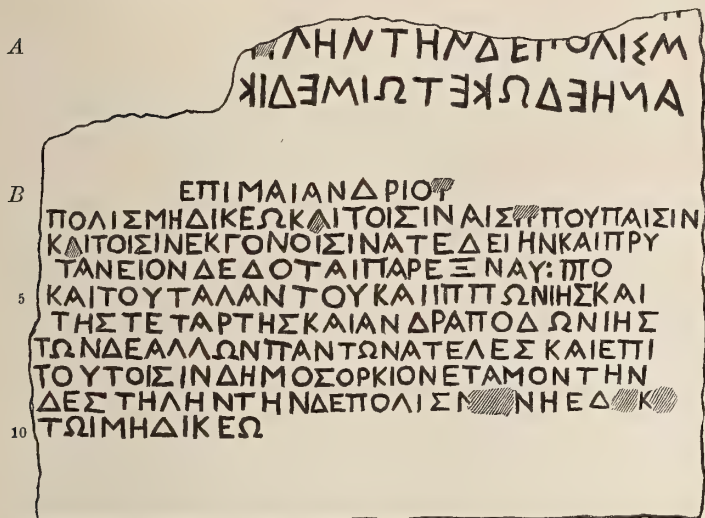 A
ΛΗΝΤΗΝΔΕΠΟΛΙΣΜ
ΑΝΗΕΔΩΚΕΤΩΙΜΕΔΙΚ
B
ΕΠΙΜΑΙΑΝΔΡΙΟΥ
ΠΟΛΙΣΜΗΔΙΚΕΩΚΑΙΤΟΙΣΙΝΑΙΣΠΠΟΥΠΑΙΣΙΝ
ΚΑΙΤΟΙΣΙΝΕΚΓΟΝΟΙΣΙΝΑΤΕΔΕΙΗΝΚΑΙΠΡΥ
ΤΑΝΕΙΟΝΔΕΔΟΤΑΙΠΑΡΕΞΝΑΥ:ΠΠΟ
5 ΚΑΙΤΟΥΤΑΛΑΝΤΟΥΚΑΙΙΠΠΩΝΙΗΣΚΑΙ
ΤΗΣΤΕΤΑΡΤΗΣΚΑΙΑΝΔΡΑΠΟΔΩΝΙΗΣ
ΤΩΝΔΕΑΛΛΩΝΠΑΝΤΩΝΑΤΕΛΕΣΚΑΙΕΠΙ
ΤΟΥΤΟΙΣΙΝΔΗΜΟΣΟΡΚΙΟΝΕΤΑΜΟΝΤΗΝ
ΔΕΣΤΗΛΗΝΤΗΝΔΕΠΟΛΙΣΜΝΗΕΔΚ
10 ΤΩΙΜΗΔΙΚΕΩ